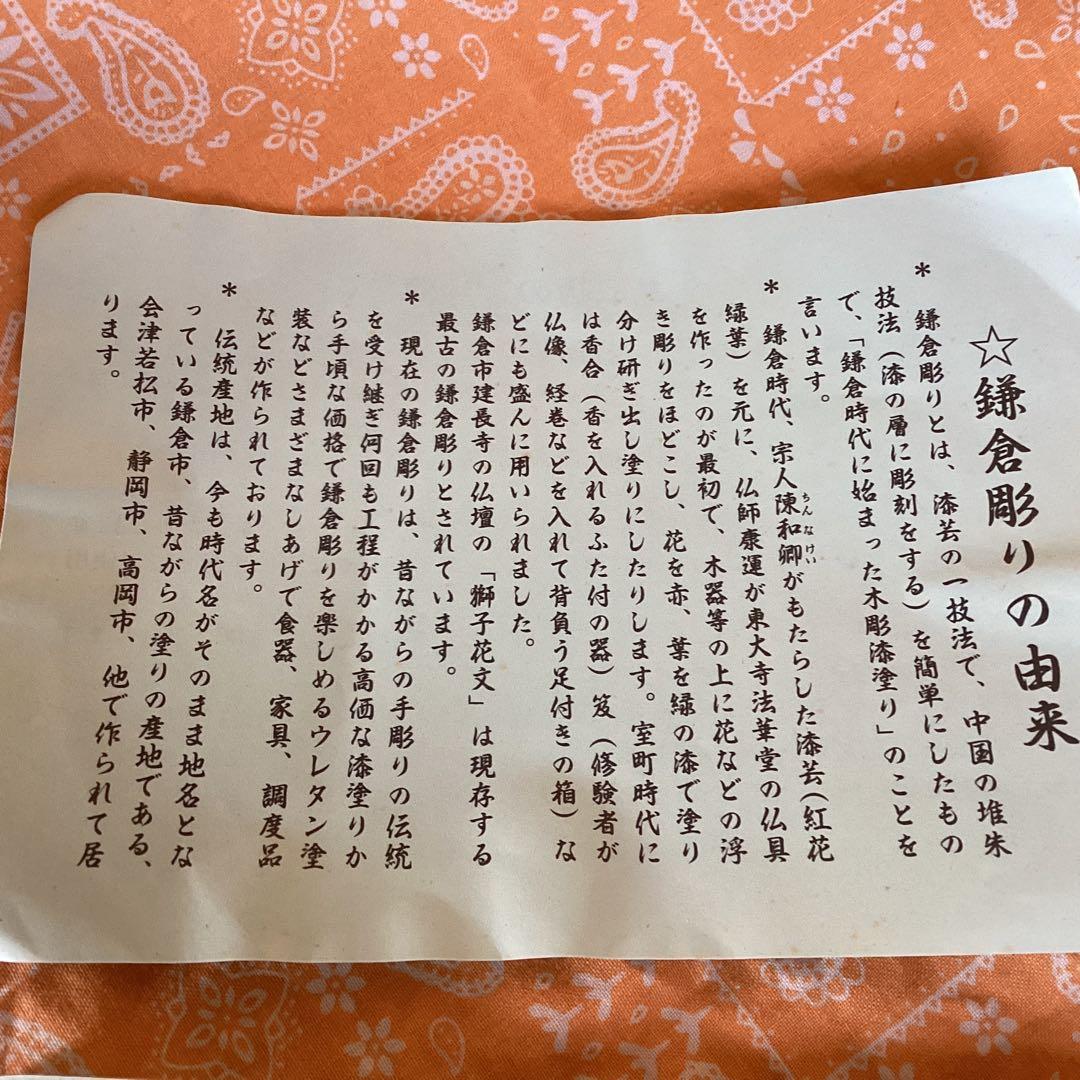 ☆鎌倉彫りの由来
＊　鎌倉彫りとは、漆芸の一技法で、中国の堆朱
技法（漆の層に彫刻をする）を簡単にしたもの
で、「鎌倉時代に始まった木彫漆塗り」のことを
言います。
＊　鎌倉時代、宗人陳和卿がもたらした漆芸（紅花
ちんなけい
緑葉）を元に、仏師康運が東大寺法華堂の仏具
を作ったのが最初で、木器等の上に花などの浮
き彫りをほどこし、花を赤、葉を緑の漆で塗り
分け研ぎ出し塗りにしたりします。室町時代に
は香合（香を入れるふた付の器）笈（修験者が
仏像、経巻などを入れて背負う足付きの箱）な
どにも盛んに用いられました。
鎌倉市建長寺の仏壇の「獅子花文」は現存する
最古の鎌倉彫りとされています。
＊　現在の鎌倉彫りは、昔ながらの手彫りの伝統
を受け継ぎ何回も工程がかかる高価な漆塗りか
ら手頃な価格で鎌倉彫りを楽しめるウレタン塗
装などさまざまなしあげで食器、家具、調度品
などが作られております。
＊　伝統産地は、今も時代名がそのまま地名とな
っている鎌倉市、昔ながらの塗りの産地である、
会津若松市、静岡市、高岡市、他で作られて居
ります。